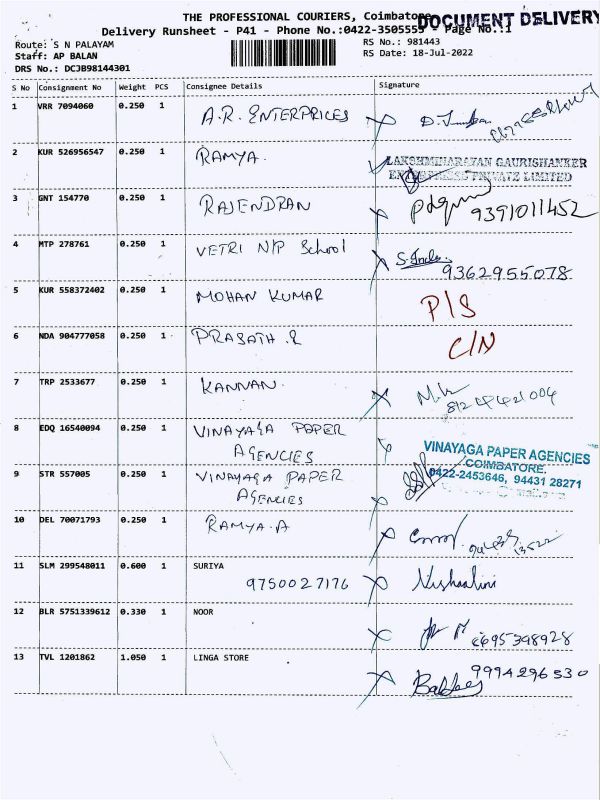 THE PROFESSIONAL COURIERS, Coimbatore
DOCUMENT DELIVERY
Delivery Runsheet - P41 - Phone No.:0422-3505555 - Page No.:1
Route: S N PALAYAM
RS No.: 981443
Staff: AP BALAN
RS Date: 18-Jul-2022
DRS No.: DCJB98144301
S No Consignment No Weight PCS Consignee Details Signature
1 VRR 7094060 0.250 1 A.R. ENTERPRICES
2 KUR 526956547 0.250 1 RAMYA.
LAKSHMINARAYAN GAURISHANKER
ENTERPRISES PRIVATE LIMITED
3 GNT 154770 0.250 1 RAJENDRAN
9391011452
4 MTP 278761 0.250 1 VETRI N/P School
9362955078
5 KUR 558372402 0.250 1 MOHAN KUMAR P/S
6 NDA 904777058 0.250 1 PRASATH .R C/N
7 TRP 2533677 0.250 1 KANNAN.
8 EDQ 16540094 0.250 1 VINAYAGA PAPER
AGENCIES
VINAYAGA PAPER AGENCIES
COIMBATORE.
0422-2453646, 94431 28271
9 STR 557005 0.250 1 VINAYAGA PAPER
AGENCIES
10 DEL 70071793 0.250 1 RAMYA.A
11 SLM 299548011 0.600 1 SURIYA
9750027176 Nishaalini
12 BLR 5751339612 0.330 1 NOOR
13 TVL 1201862 1.050 1 LINGA STORE
9994296530